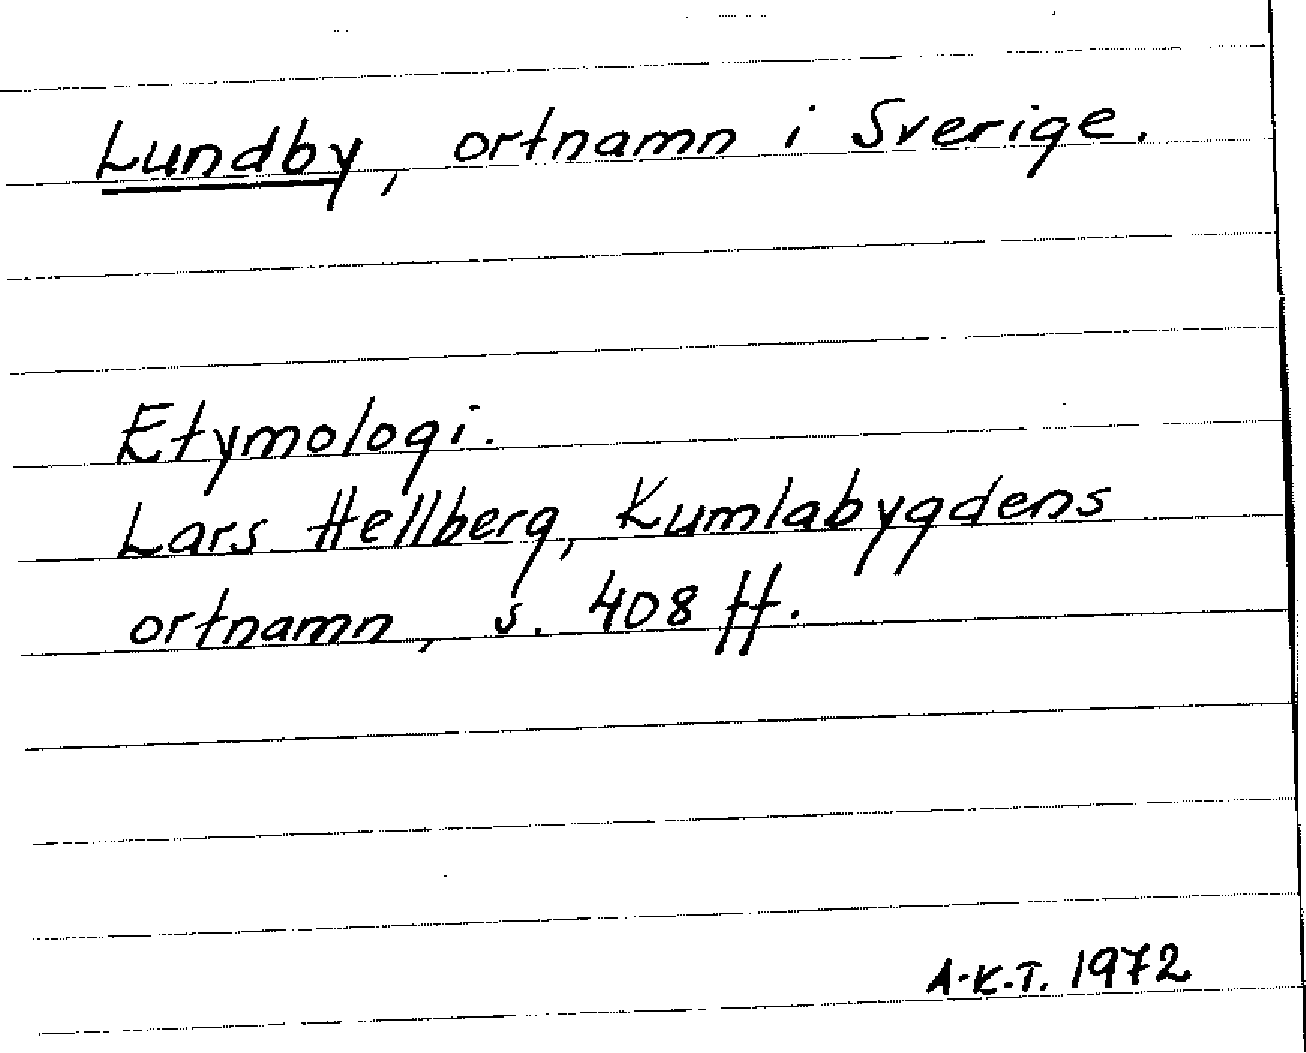 Lundby, ortnamn i Sverige.
Etymologi.
Lars Hellberg, Kumlabygdens
ortnamn, s. 408 ff.
A-K.T. 1972